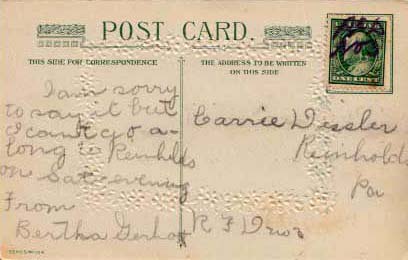 POST CARD.
THIS SIDE FOR CORRESPONDENCE
THE ADDRESS TO BE WRITTEN
ON THIS SIDE
I am sorry
to say it but
I cant go a-
long to Reinholds
on Sat evening
From
Bertha
Carrie
Reinholds
Pa
R F D
ONE CENT